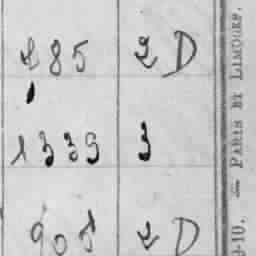 285 2 D
1339 3
905 2 D
— PARIS ET LIMOGES.
-10.